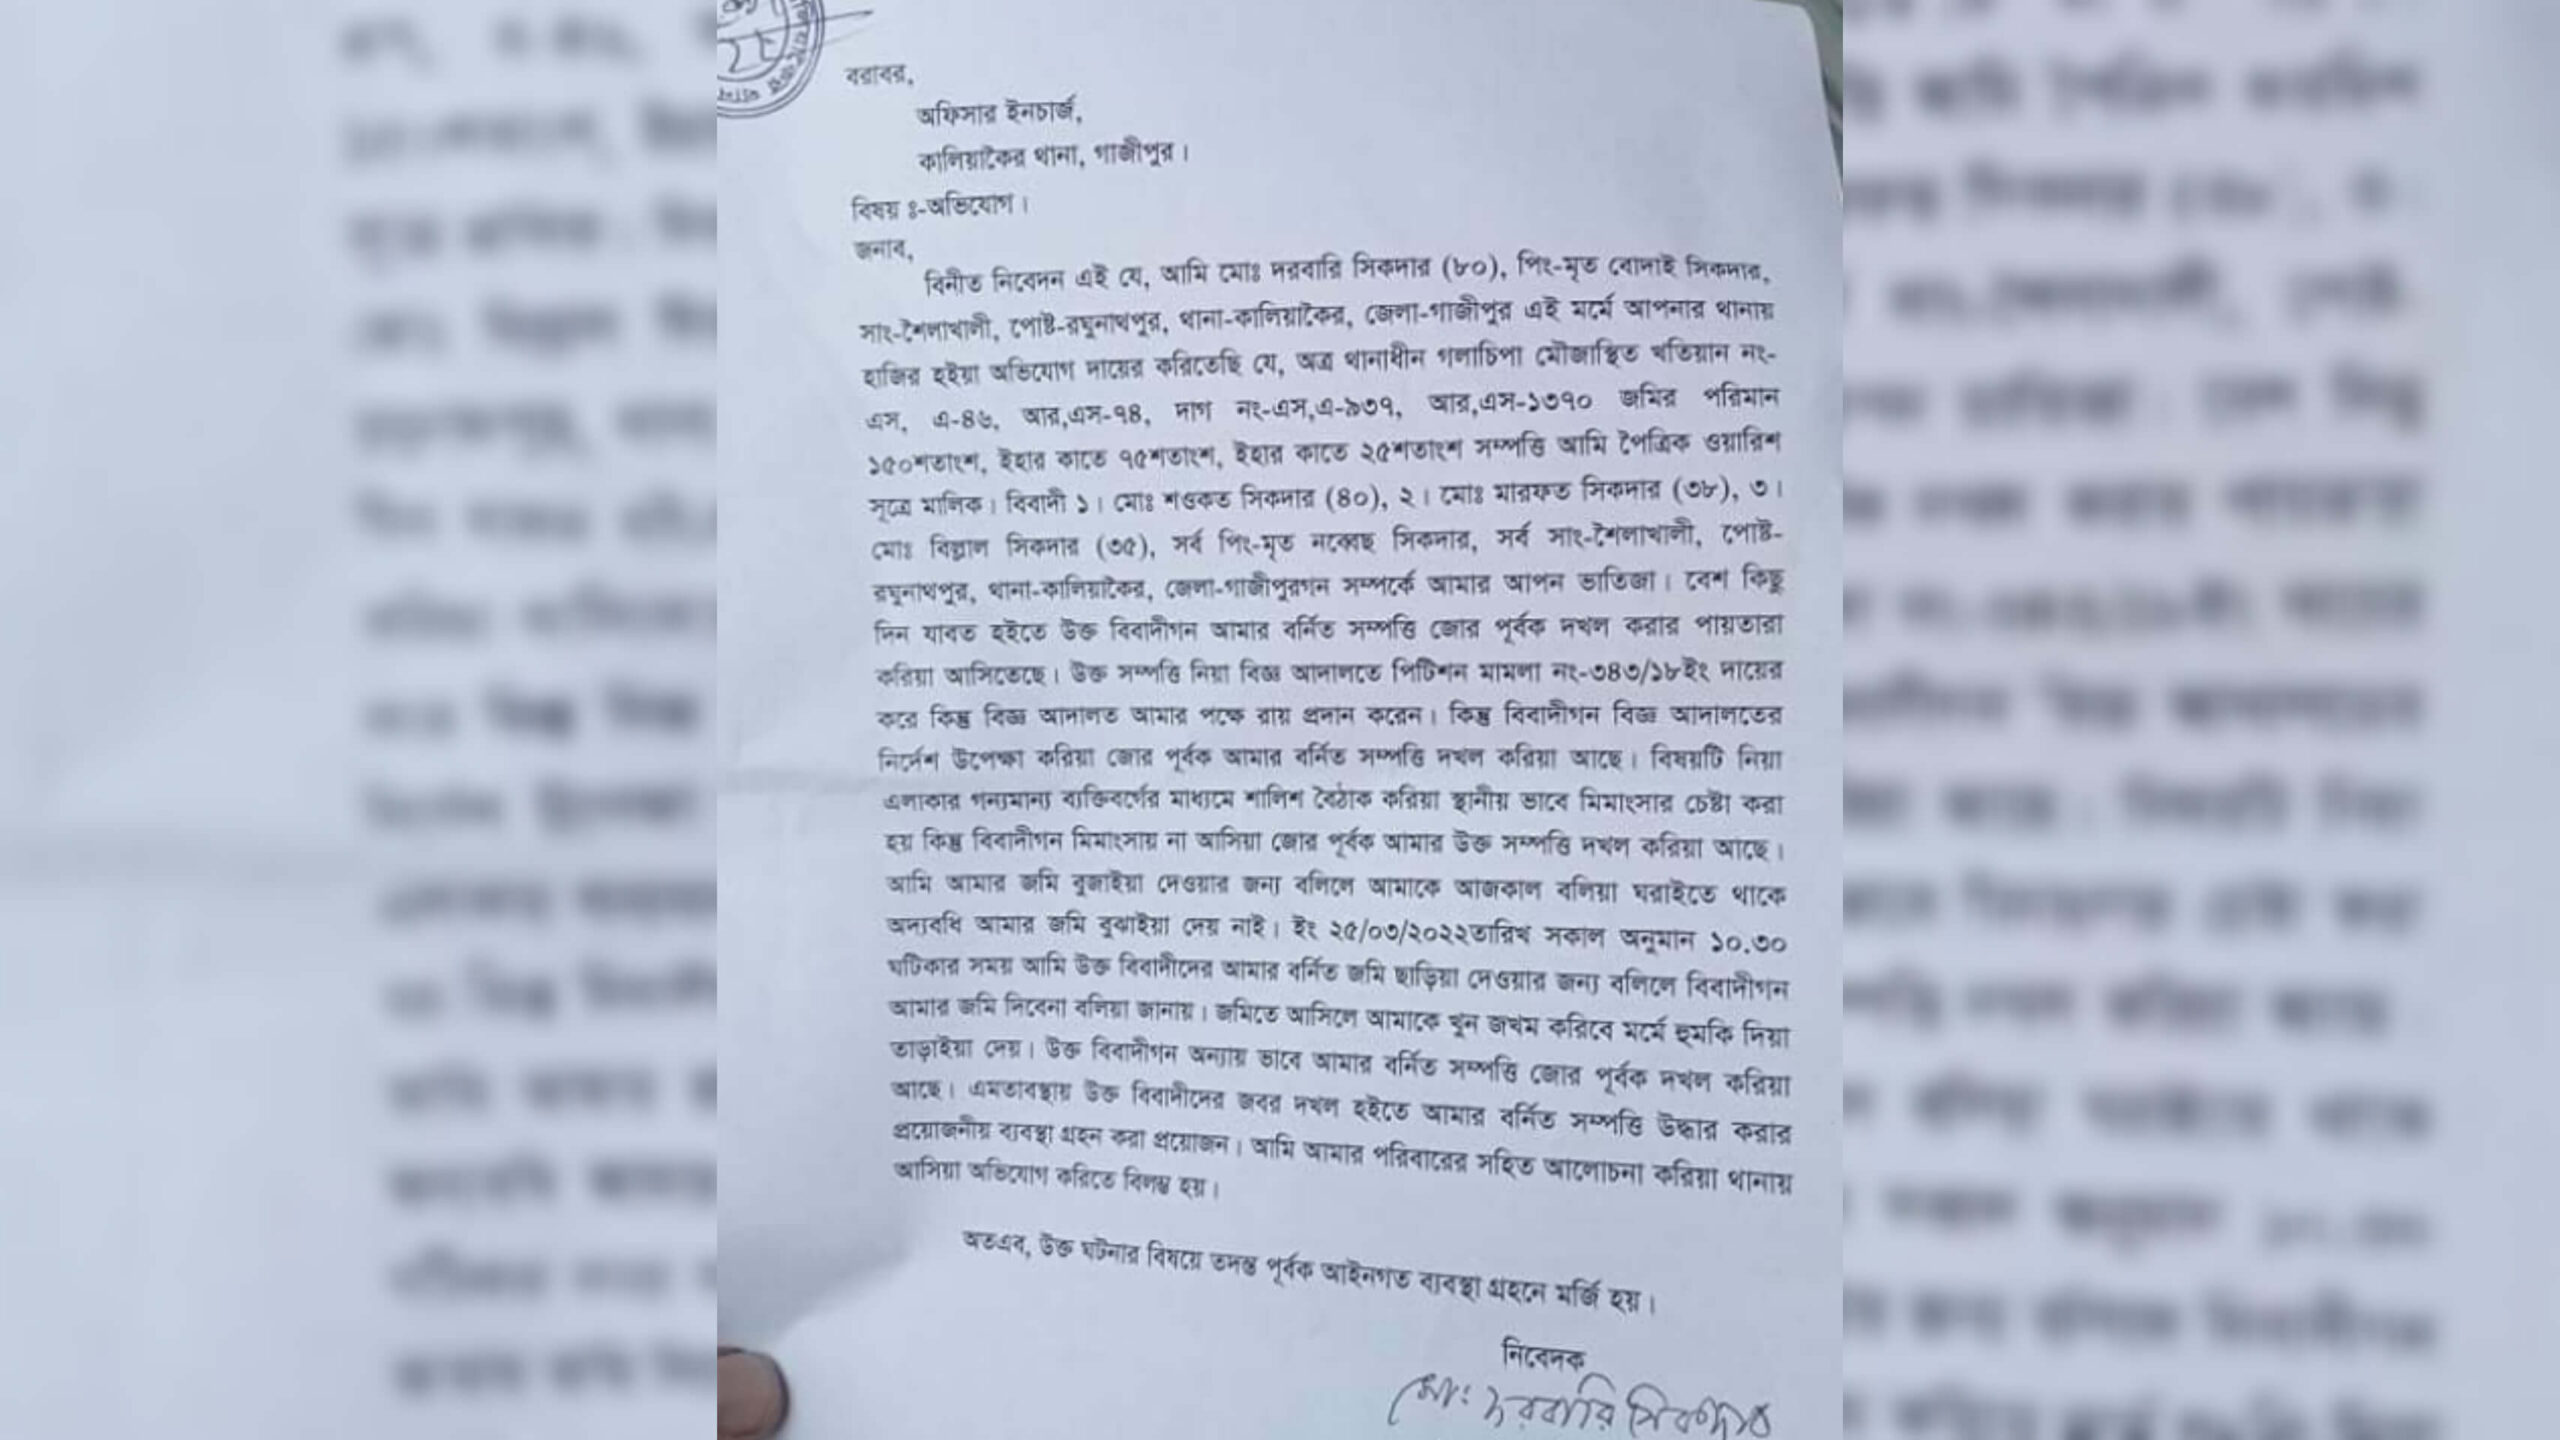 বরাবর,
অফিসার ইনচার্জ,
কালিয়াকৈর থানা, গাজীপুর।
বিষয় ঃ-অভিযোগ।
জনাব,
বিনীত নিবেদন এই যে, আমি মোঃ দরবারি সিকদার (৮০), পিং-মৃত বোদাই সিকদার,
সাং-শৈলাখালী, পোষ্ট-রঘুনাথপুর, থানা-কালিয়াকৈর, জেলা-গাজীপুর এই মর্মে আপনার থানায়
হাজির হইয়া অভিযোগ দায়ের করিতেছি যে, অত্র থানাধীন গলাচিপা মৌজাস্থিত খতিয়ান নং-
এস, এ-৪৬, আর,এস-৭৪, দাগ নং-এস,এ-৯৩৭, আর,এস-১৩৭০ জমির পরিমান
১৫০শতাংশ, ইহার কাতে ৭৫শতাংশ, ইহার কাতে ২৫শতাংশ সম্পত্তি আমি পৈত্রিক ওয়ারিশ
সূত্রে মালিক। বিবাদী ১। মোঃ শওকত সিকদার (৪০), ২। মোঃ মারফত সিকদার (৩৮), ৩।
মোঃ বিল্লাল সিকদার (৩৫), সর্ব পিং-মৃত নব্বেছ সিকদার, সর্ব সাং-শৈলাখালী, পোষ্ট-
রঘুনাথপুর, থানা-কালিয়াকৈর, জেলা-গাজীপুরগন সম্পর্কে আমার আপন ভাতিজা। বেশ কিছু
দিন যাবত হইতে উক্ত বিবাদীগন আমার বর্নিত সম্পত্তি জোর পূর্বক দখল করার পায়তারা
করিয়া আসিতেছে। উক্ত সম্পত্তি নিয়া বিজ্ঞ আদালতে পিটিশন মামলা নং-৩৪৩/১৮ইং দায়ের
করে কিন্তু বিজ্ঞ আদালত আমার পক্ষে রায় প্রদান করেন। কিন্তু বিবাদীগন বিজ্ঞ আদালতের
নির্দেশ উপেক্ষা করিয়া জোর পূর্বক আমার বর্নিত সম্পত্তি দখল করিয়া আছে। বিষয়টি নিয়া
এলাকার গন্যমান্য ব্যক্তিবর্গের মাধ্যমে শালিশ বৈঠাক করিয়া স্থানীয় ভাবে মিমাংসার চেষ্টা করা
হয় কিন্তু বিবাদীগন মিমাংসায় না আসিয়া জোর পূর্বক আমার উক্ত সম্পত্তি দখল করিয়া আছে।
আমি আমার জমি বুজাইয়া দেওয়ার জন্য বলিলে আমাকে আজকাল বলিয়া ঘরাইতে থাকে
অদ্যবধি আমার জমি বুঝাইয়া দেয় নাই। ইং ২৫/০৩/২০২২তারিখ সকাল অনুমান ১০.৩০
ঘটিকার সময় আমি উক্ত বিবাদীদের আমার বর্নিত জমি ছাড়িয়া দেওয়ার জন্য বলিলে বিবাদীগন
আমার জমি দিবেনা বলিয়া জানায়। জমিতে আসিলে আমাকে খুন জখম করিবে মর্মে হুমকি দিয়া
তাড়াইয়া দেয়। উক্ত বিবাদীগন অন্যায় ভাবে আমার বর্নিত সম্পত্তি জোর পূর্বক দখল করিয়া
আছে। এমতাবস্থায় উক্ত বিবাদীদের জবর দখল হইতে আমার বর্নিত সম্পত্তি উদ্ধার করার
প্রয়োজনীয় ব্যবস্থা গ্রহন করা প্রয়োজন। আমি আমার পরিবারের সহিত আলোচনা করিয়া থানায়
আসিয়া অভিযোগ করিতে বিলম্ব হয়।
অতএব, উক্ত ঘটনার বিষয়ে তদন্ত পূর্বক আইনগত ব্যবস্থা গ্রহনে মর্জি হয়।
নিবেদক
মোঃ দরবারি সিকদার